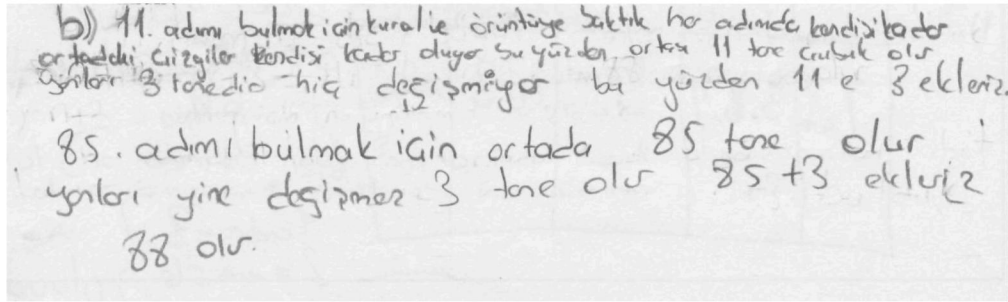 b) 11. adımı bulmak için kural ve örüntüye baktık her adımda kendisi kadar
ortadaki çizgiler kendisi kadar oluyor bu yüzden ortası 11 tane çubuk olur
yanları 3 tanedir hiç değişmiyor bu yüzden 11 e 3 ekleriz.
85. adımı bulmak için ortada 85 tane olur
yanları yine değişmez 3 tane olur 85 +3 ekleriz
88 olur.